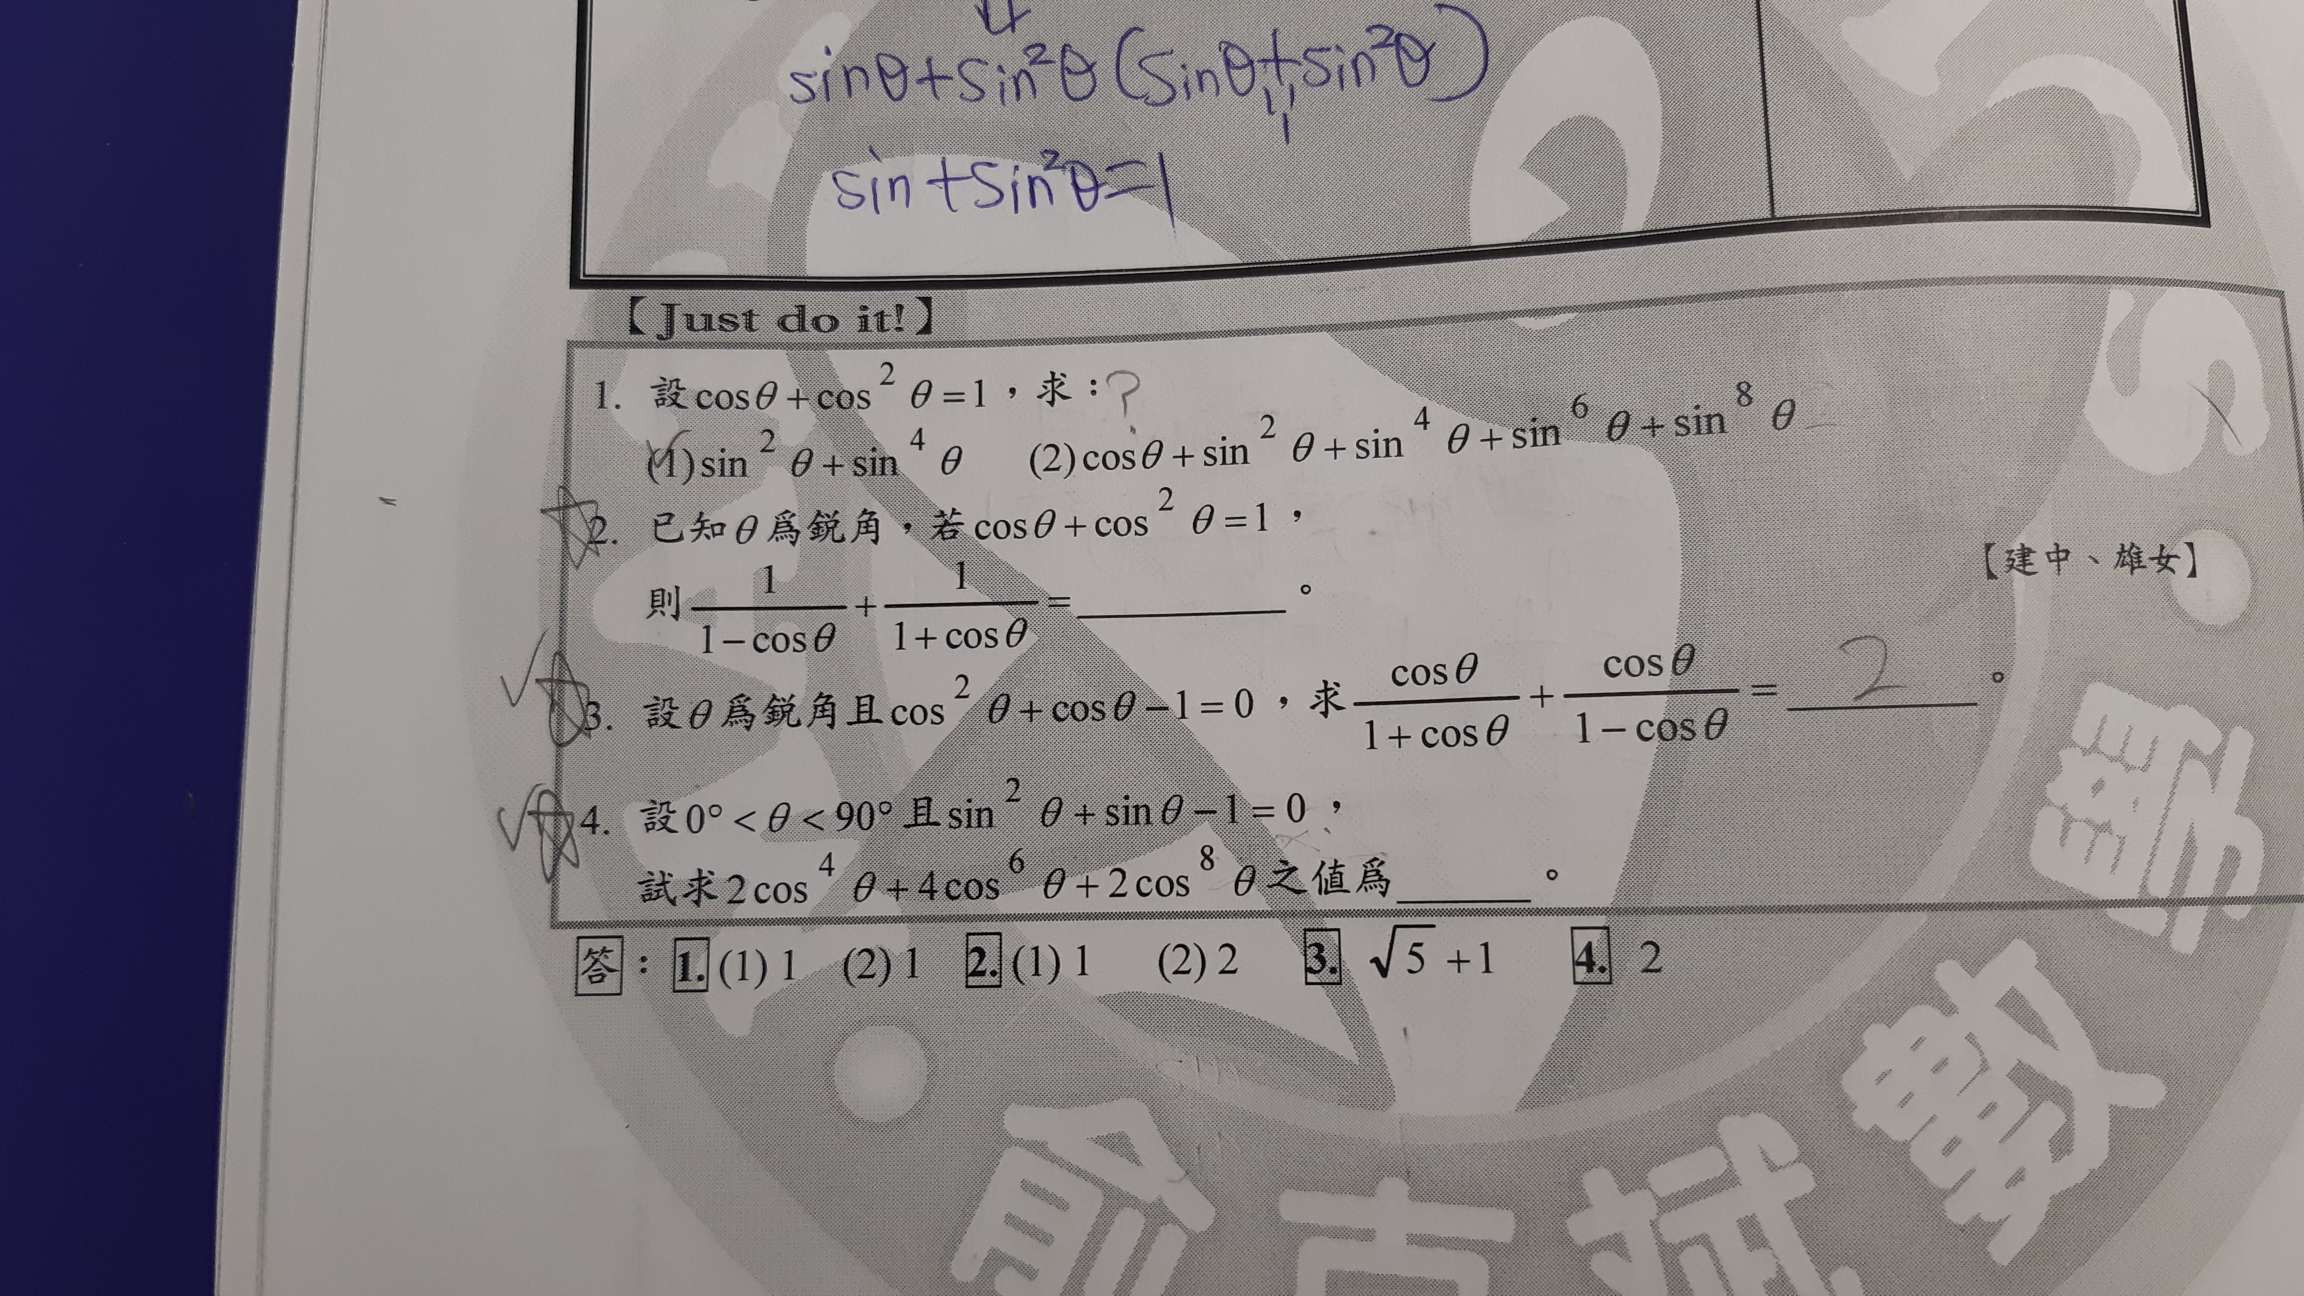 sinθ+sin²θ(sinθ+sin²θ)
1
sin+sin²θ=1
【Just do it!】
1. 設cosθ+cos²θ=1，求：?
(1)sin²θ+sin⁴θ (2)cosθ+sin²θ+sin⁴θ+sin⁶θ+sin⁸θ
2. 已知θ爲銳角，若cosθ+cos²θ=1，
【建中、雄女】
則 1/(1−cosθ) + 1/(1+cosθ) =＿＿＿＿。
3. 設θ爲銳角且cos²θ+cosθ−1=0，求 cosθ/(1+cosθ) + cosθ/(1−cosθ) = 2 。
4. 設0°<θ<90°且sin²θ+sinθ−1=0，
試求2cos⁴θ+4cos⁶θ+2cos⁸θ之值爲＿＿＿。
答：1.(1)1 (2)1 2.(1)1 (2)2 3. √5+1 4. 2